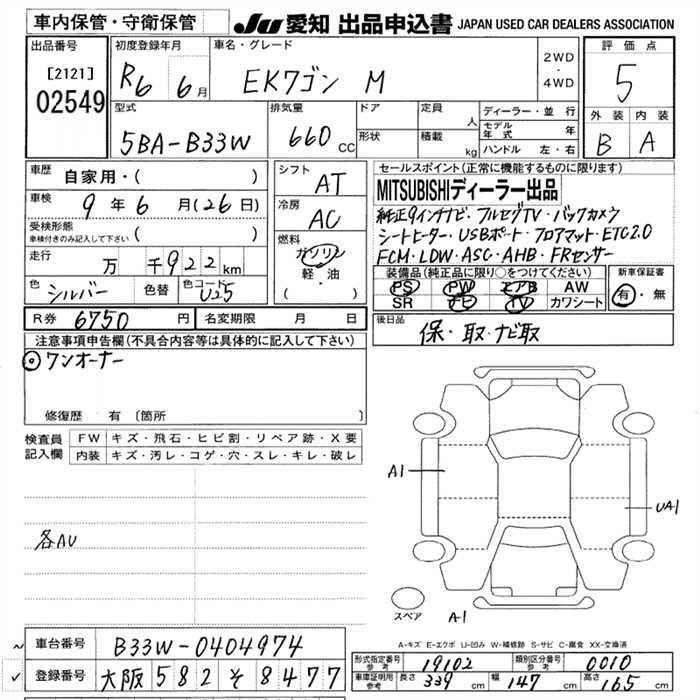 車内保管・守衛保管
JU 愛知 出品申込書 JAPAN USED CAR DEALERS ASSOCIATION
出品番号
[2121]
02549
初度登録年月
R6 6月
車名・グレード
EKワゴン M
2WD
・
4WD
評価点
5
外装 内装
B A
型式
5BA-B33W
排気量
660 CC
ドア
形状
定員 人
積載 kg
ディーラー・並行
モデル年式 年
ハンドル 左・右
車歴 自家用・( )
車検 9年6月(26日)
受検形態
車検付きのみ記入して下さい ( )
走行 万 千922km
色 シルバー 色替 色コード U25
シフト
AT
冷房
AC
燃料
ガソリン
軽・油
( )
セールスポイント(正常に機能するものに限ります)
MITSUBISHIディーラー出品
純正9インチナビ・フルセグTV・バックカメラ
シートヒーター・USBポート・フロアマット・ETC2.0
FCM・LDW・ASC・AHB・FRセンサー
装備品(純正品に限り○をつけてください)
PS PW エアB AW
SR ナビ TV カワシート
新車保証書
有・無
R券 6750 円 名変期限 月 日
後日品
保・取・ナビ取
注意事項申告欄(不具合内容等は具体的に記入して下さい)
◎ワンオーナー
修復歴 有 〔箇所 〕
検査員
記入欄
FW キズ・飛石・ヒビ割・リペア跡・X要
内装 キズ・汚レ・コゲ・穴・スレ・キレ・破レ
各AU
A1
UA1
スペア
A-1
A-キズ E-エクボ U-凹み W-補修跡 S-サビ C-腐食 XX-交換済
〜 車台番号 B33W-0404974
✓ 登録番号 大阪 582 そ 8477
形式指定番号 参考 19102 類別区分番号 参考 0010
車庫証明用 参考 長さ 339 幅 147 高さ 165 cm